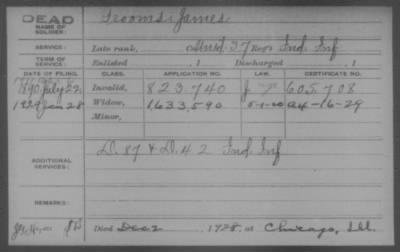 DEAD
NAME OF SOLDIER:
Scooms, James
SERVICE:
Late rank, Unas'd 37 Regt Ind Inf
TERM OF SERVICE:
Enlisted , 1 Discharged , 1
DATE OF FILING. CLASS. APPLICATION NO. LAW. CERTIFICATE NO.
1890 July 22 Invalid, 823.740 605,708
1929 Jan 28 Widow, 1,633,590 5-1-20 A4-16-29
Minor,
ADDITIONAL SERVICES:
D. 87 & D. 42 Ind Inf
REMARKS:
Died Dec 2 1928, at Chicago, Ill.